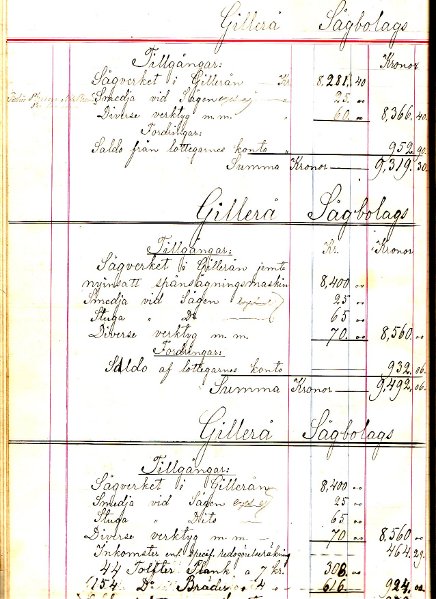 Gillerå Sågbolags
Tillgångar: Kronor
Sågverket i Gillerån — Kr 8,281. 40
Smedja vid Sågen " 25. "
Diverse verktyg m. m. " 60. " 8,366. 40
Fordringar:
Saldo från lottegarnes konto " 952. 90
Summa Kronor — 9,319. 30
Gillerå Sågbolags
Tillgångar: Kr. Kronor
Sågverket i Gillerån jemte
nyinsatt spånsågningsmaskin 8,400 "
Smedja vid Sågen 25 "
Stuga " Do 65 "
Diverse verktyg m. m. 70. " 8,560. "
Fordringar:
Saldo af lottegarnes konto 932. 06.
Summa Kronor — 9,492. 06.
Gillerå Sågbolags
Tillgångar:
Sågverket i Gillerån — 8,400 "
Smedja vid Sågen 25 "
Stuga " Dito — 65 "
Diverse verktyg m. m. — 70 " 8,560 "
Inkomster enl. specif. redovisning 464. 29.
44 Tolfter Plank a 7 kr. 308. "
154 Do Bräder " 4 " 616. " 924. "